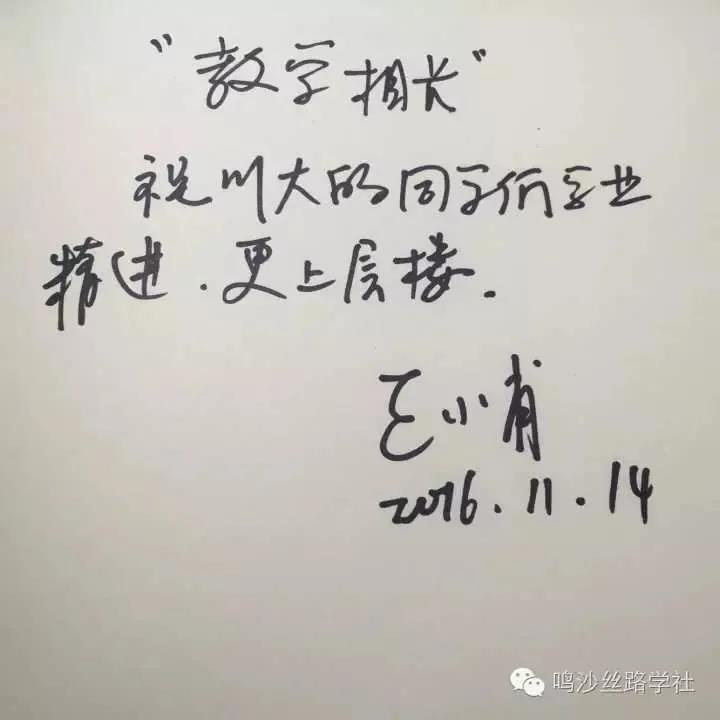 "教学相长"
祝川大的同学们学业
精进.更上层楼.
王小甫
2016.11.14
鸣沙丝路学社